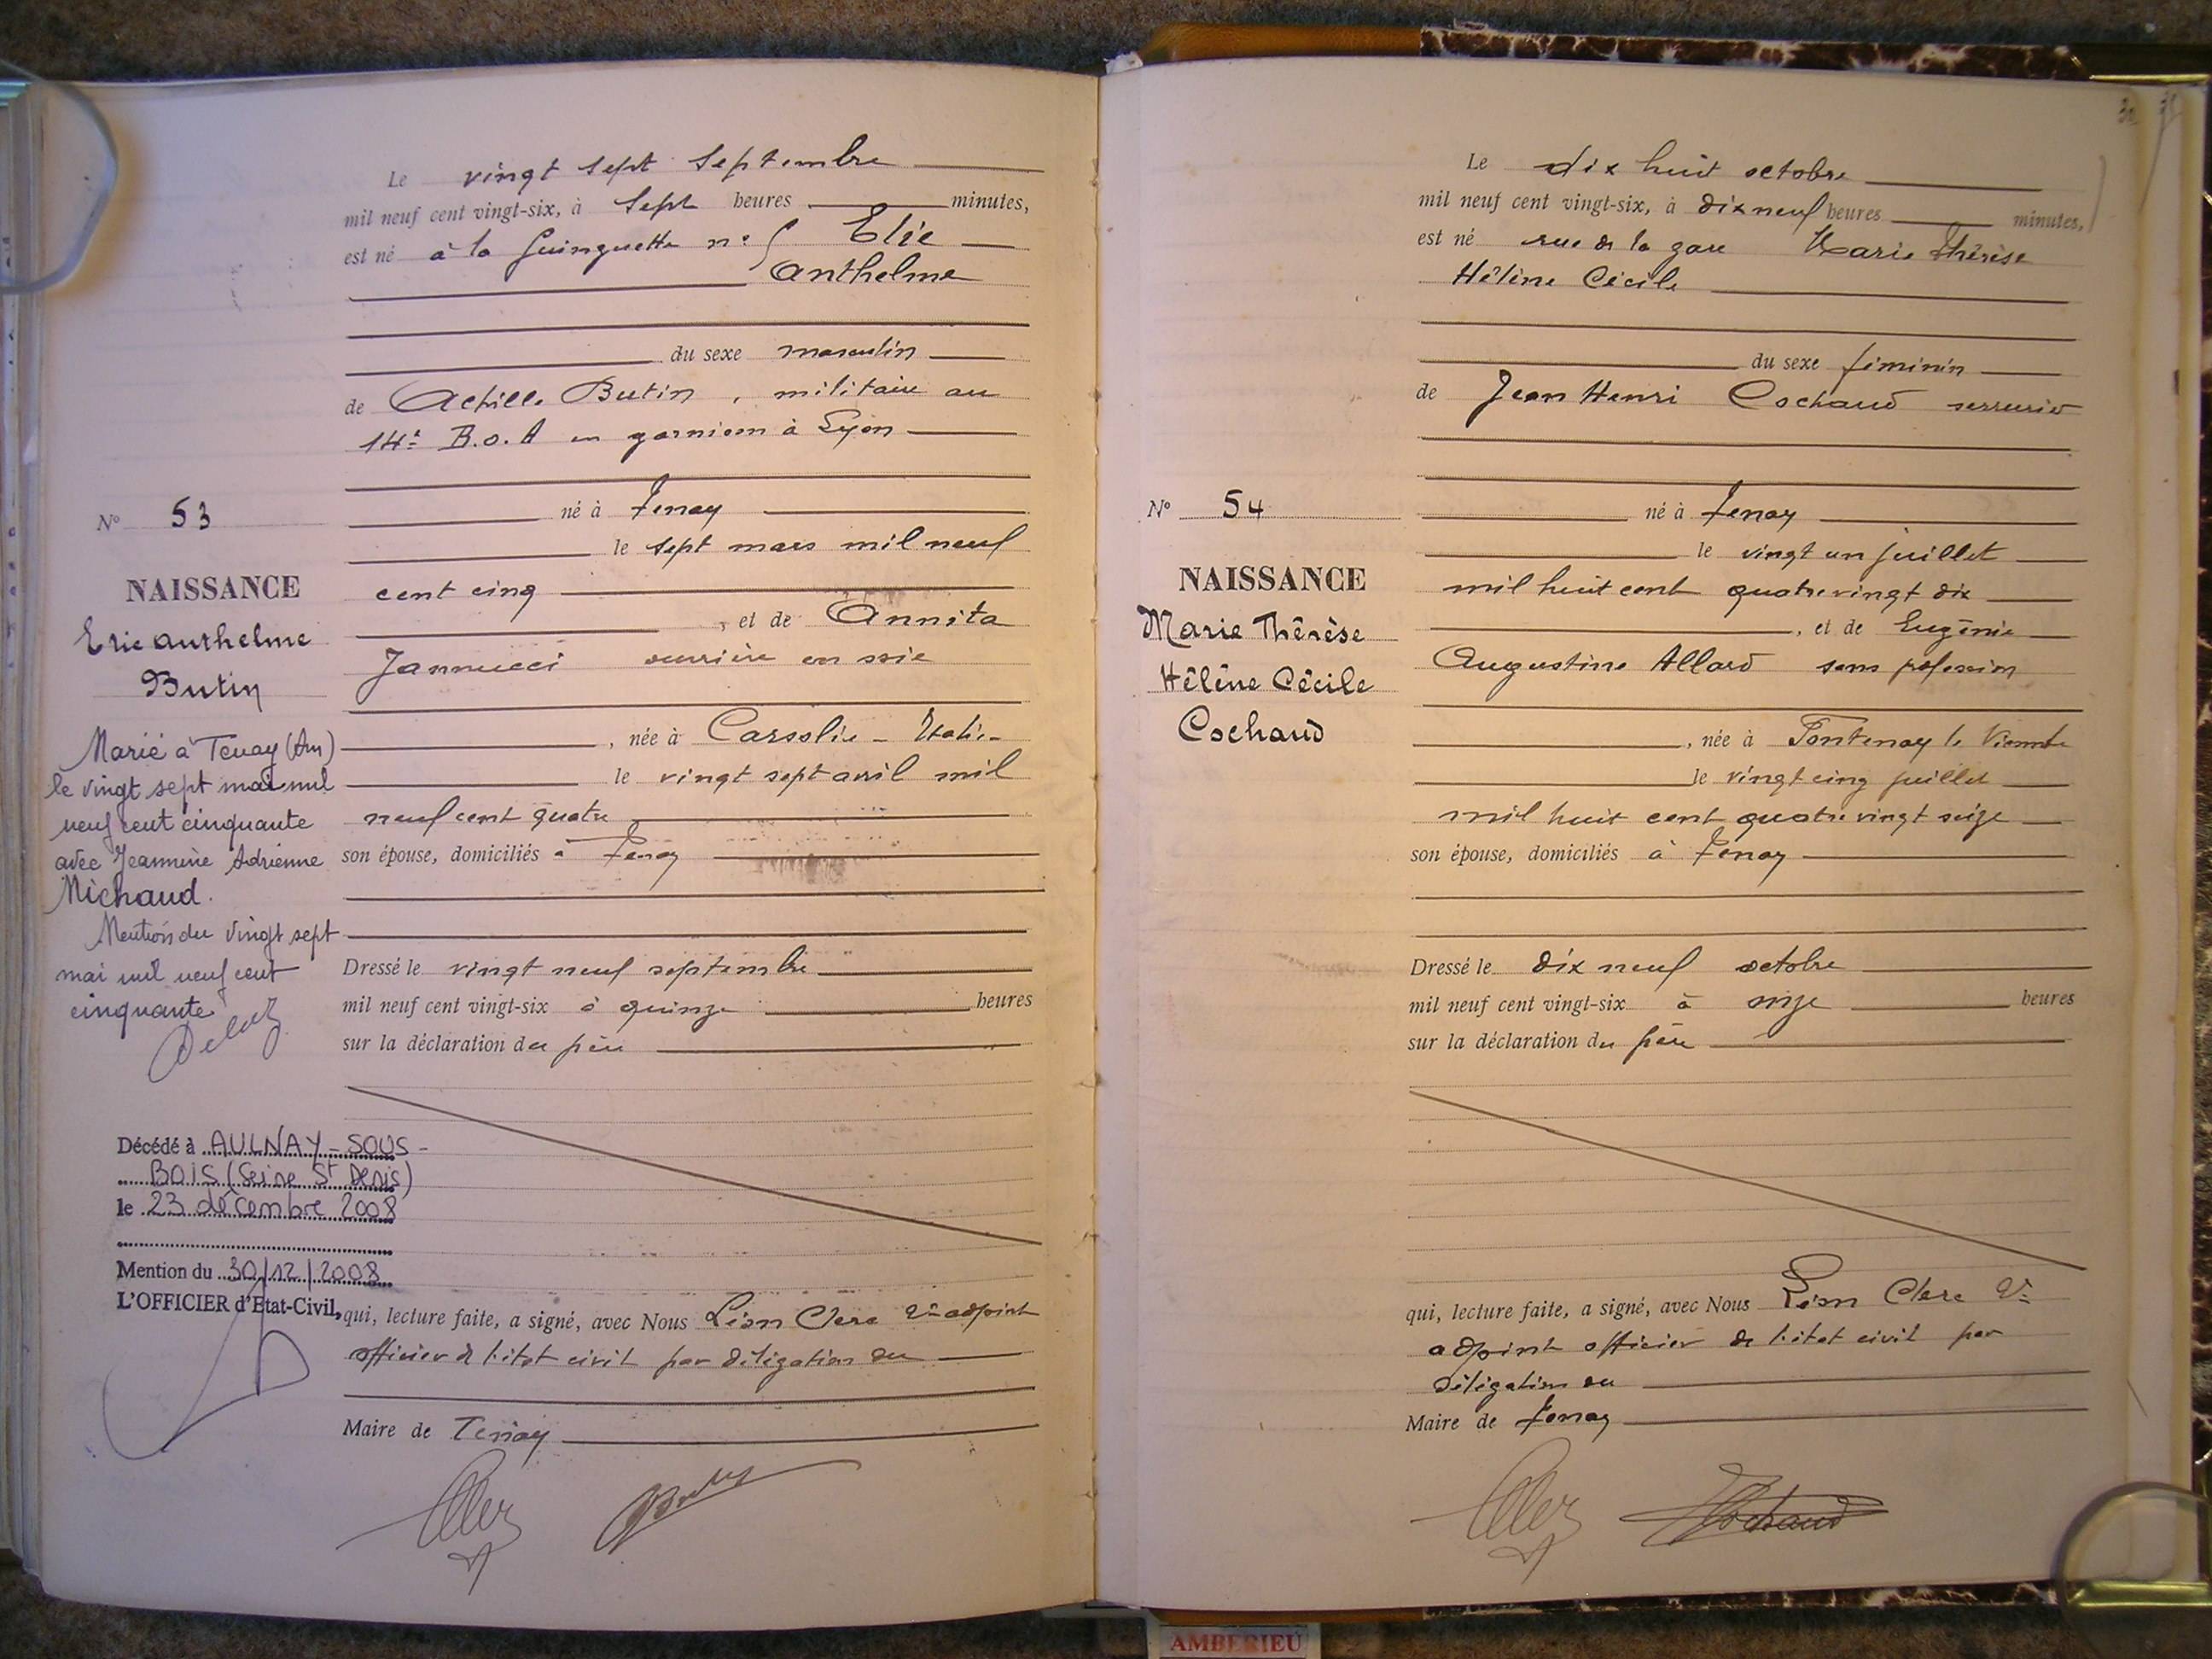 Le vingt sept septembre
mil neuf cent vingt-six, à sept heures minutes,
est né à la Guinguette n° Elie
Anthelme
du sexe masculin
de Achille Butin, militaire au
14e B.O.A en garnison à Lyon
N° 53
né à Tenay
le sept mars mil neuf
NAISSANCE
cent cinq
Elie Anthelme
, et de Annita
Butin
Jannucci ouvrière en soie
Marié à Tenay (Ain)
, née à Carsolie - Italie
le vingt sept mai mil
le vingt sept avril mil
neuf cent cinquante
neuf cent quatre
avec Jeannine Adrienne
son épouse, domiciliés à Tenay
Michaud.
Mention du vingt sept
mai mil neuf cent
Dressé le vingt neuf septembre
cinquante
mil neuf cent vingt-six à quinze heures
sur la déclaration du père
Décédé à AULNAY-SOUS-
BOIS (Seine St Denis)
le 23 décembre 2008
Mention du 30/12/2008
L'OFFICIER d'Etat-Civil,
qui, lecture faite, a signé, avec Nous Léon Clerc 2e adjoint
officier de l'état civil par délégation du
Maire de Tenay
Le dix huit octobre
mil neuf cent vingt-six, à dix neuf heures minutes,
est né rue de la gare Marie Thérèse
Hélène Cécile
du sexe féminin
de Jean Henri Cochaud serrurier
N° 54
né à Tenay
le vingt un juillet
NAISSANCE
mil huit cent quatre vingt dix
Marie Thérèse
, et de Eugénie
Hélène Cécile
Augustine Allard sans profession
Cochaud
, née à Fontenay le
le vingt cinq juillet
mil huit cent quatre vingt seize
son épouse, domiciliés à Tenay
Dressé le dix neuf octobre
mil neuf cent vingt-six à onze heures
sur la déclaration du père
qui, lecture faite, a signé, avec Nous Léon Clerc 2e
adjoint officier de l'état civil par
délégation du
Maire de Tenay
Cochaud
AMBERIEU